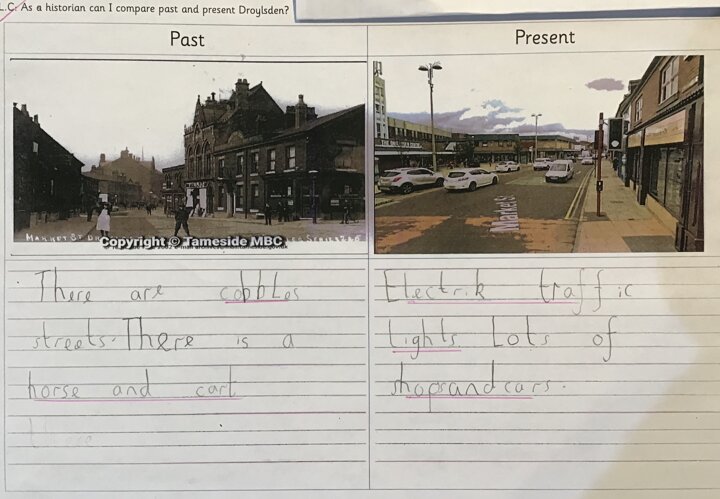 L.C. As a historian can I compare past and present Droylsden?
Past
Present
MARKET ST
Copyright © Tameside MBC
Market St
There are cobbles
streets. There is a
horse and cart
Electrik traffic
lights. Lots of
shops and cars.